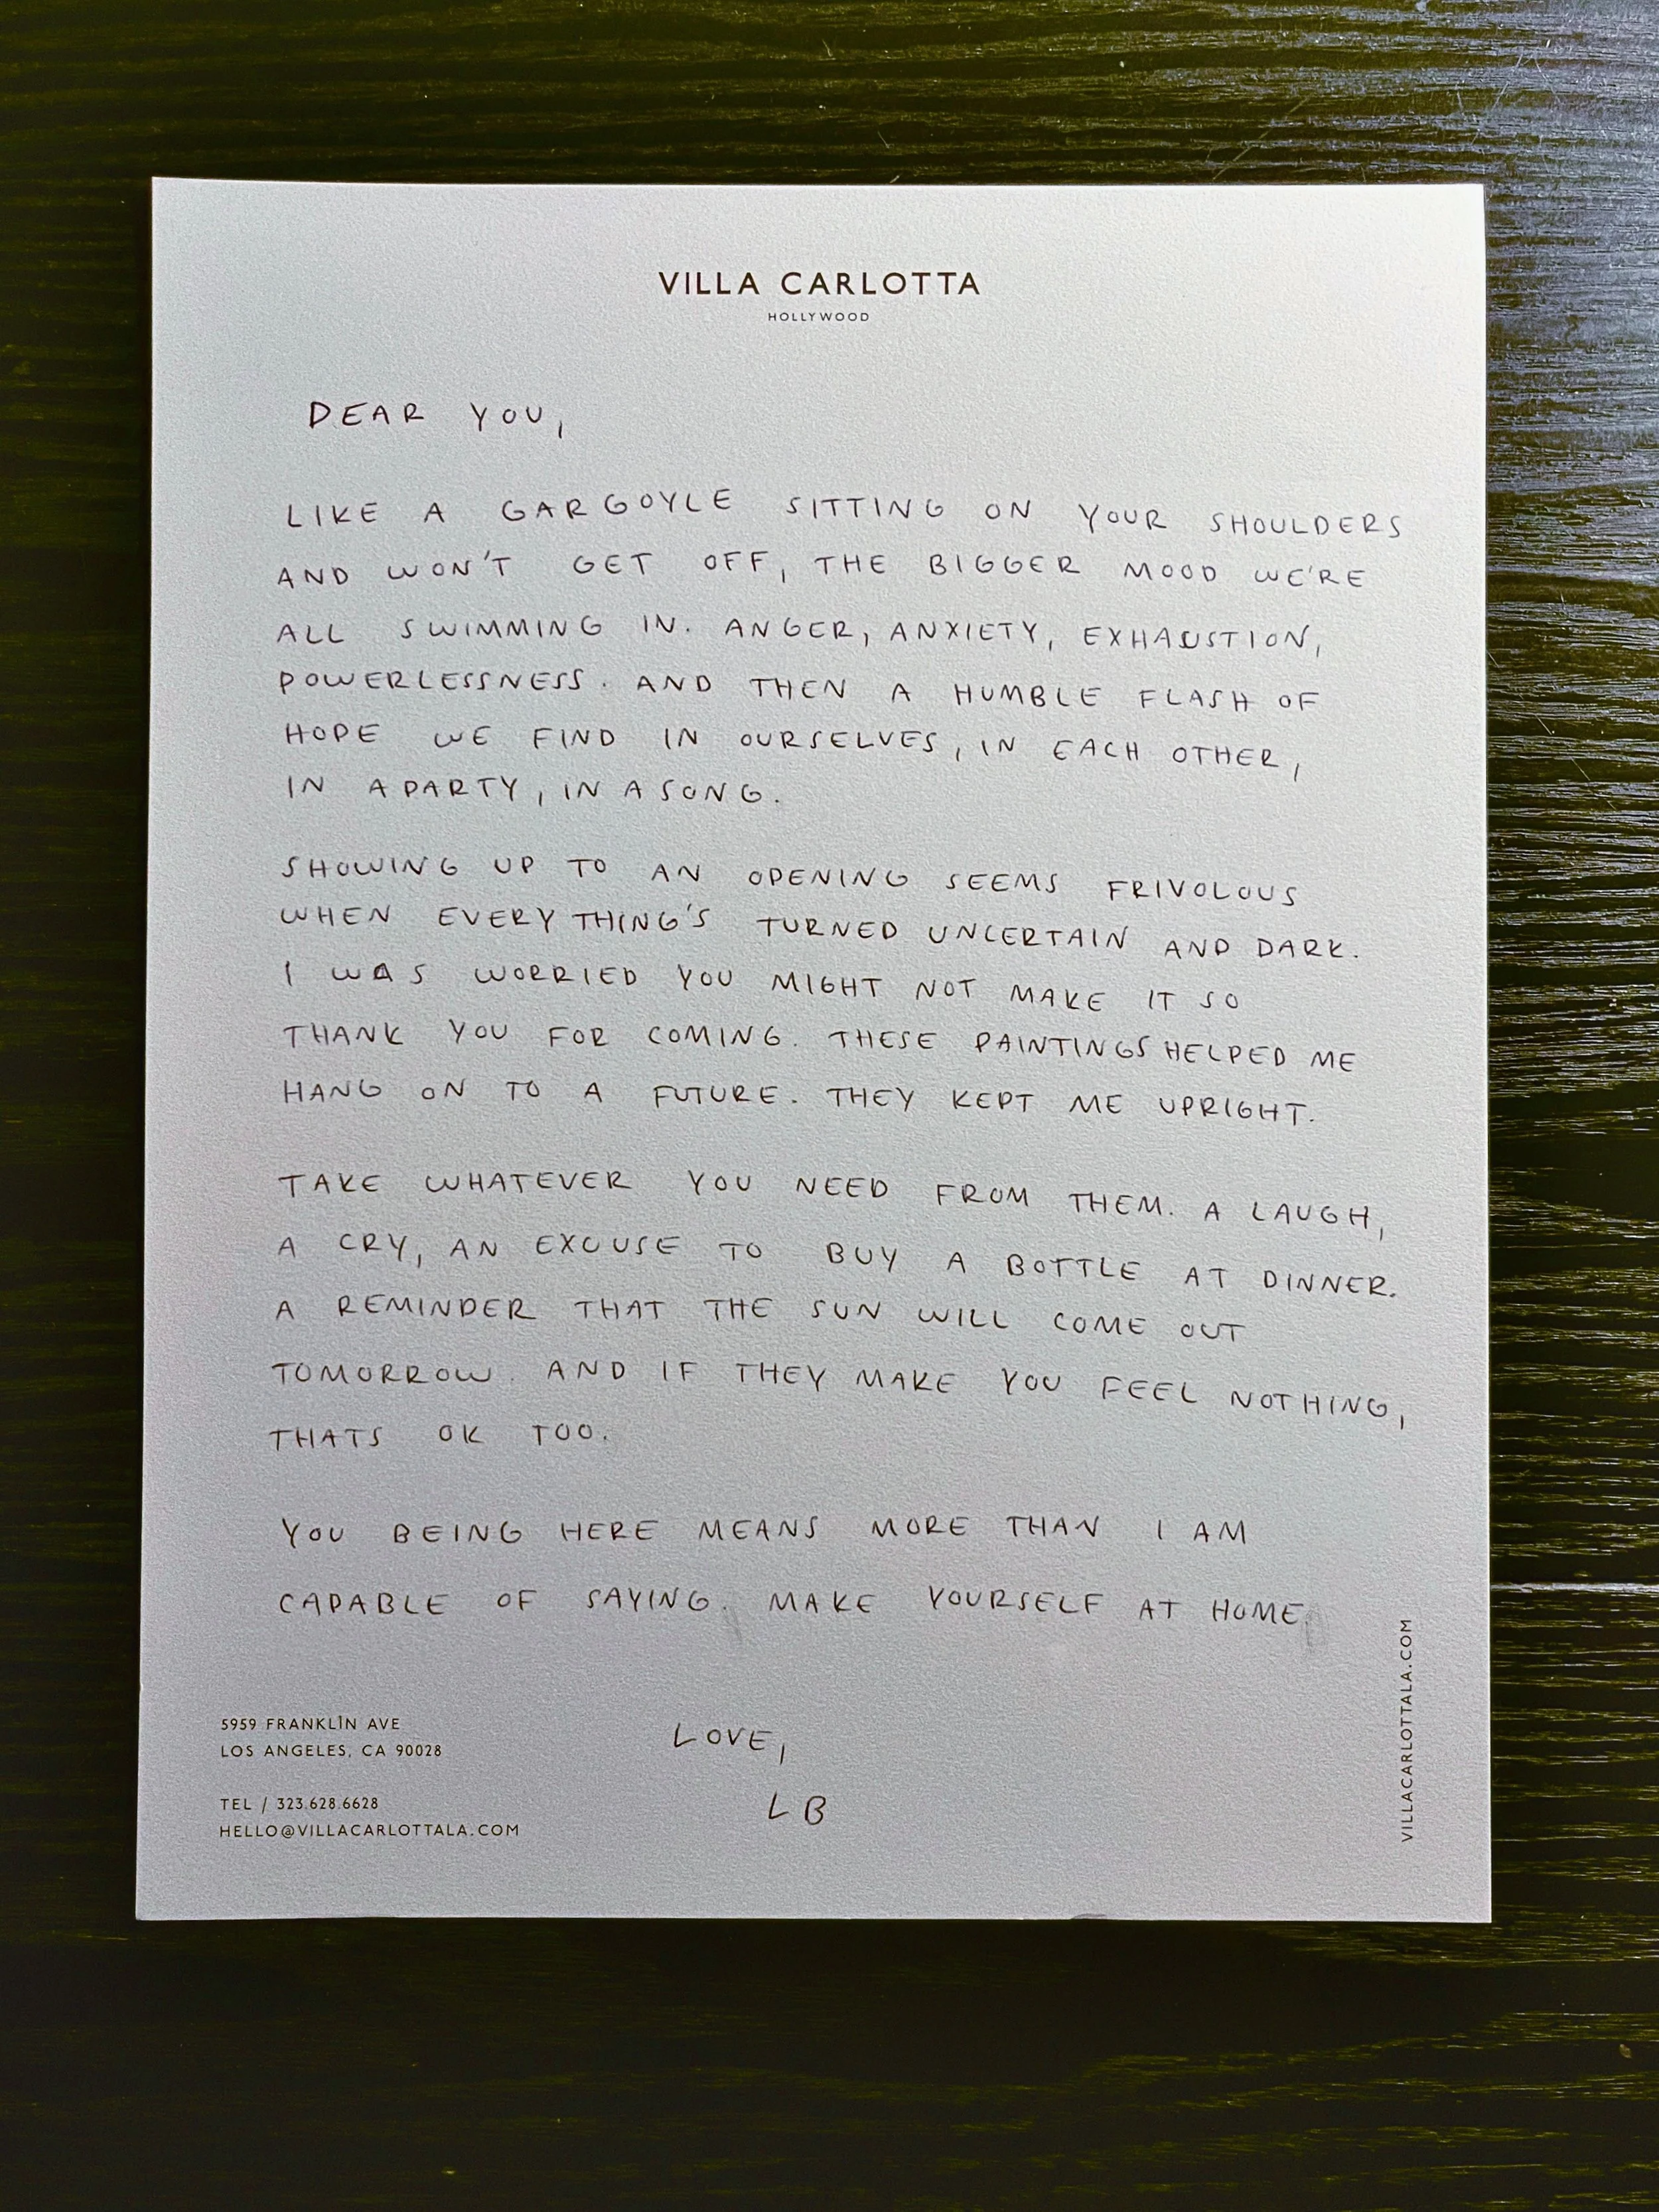 VILLA CARLOTTA
HOLLYWOOD
DEAR YOU,
LIKE A GARGOYLE SITTING ON YOUR SHOULDERS
AND WON'T GET OFF, THE BIGGER MOOD WE'RE
ALL SWIMMING IN. ANGER, ANXIETY, EXHAUSTION,
POWERLESSNESS. AND THEN A HUMBLE FLASH OF
HOPE WE FIND IN OURSELVES, IN EACH OTHER,
IN A PARTY, IN A SONG.
SHOWING UP TO AN OPENING SEEMS FRIVOLOUS
WHEN EVERYTHING'S TURNED UNCERTAIN AND DARK.
I WAS WORRIED YOU MIGHT NOT MAKE IT SO
THANK YOU FOR COMING. THESE PAINTINGS HELPED ME
HANG ON TO A FUTURE. THEY KEPT ME UPRIGHT.
TAKE WHATEVER YOU NEED FROM THEM. A LAUGH,
A CRY, AN EXCUSE TO BUY A BOTTLE AT DINNER.
A REMINDER THAT THE SUN WILL COME OUT
TOMORROW. AND IF THEY MAKE YOU FEEL NOTHING,
THATS OK TOO.
YOU BEING HERE MEANS MORE THAN I AM
CAPABLE OF SAYING. MAKE YOURSELF AT HOME.
LOVE,
LB
5959 FRANKLIN AVE
LOS ANGELES, CA 90028
TEL / 323.628.6628
HELLO@VILLACARLOTTALA.COM
VILLACARLOTTALA.COM